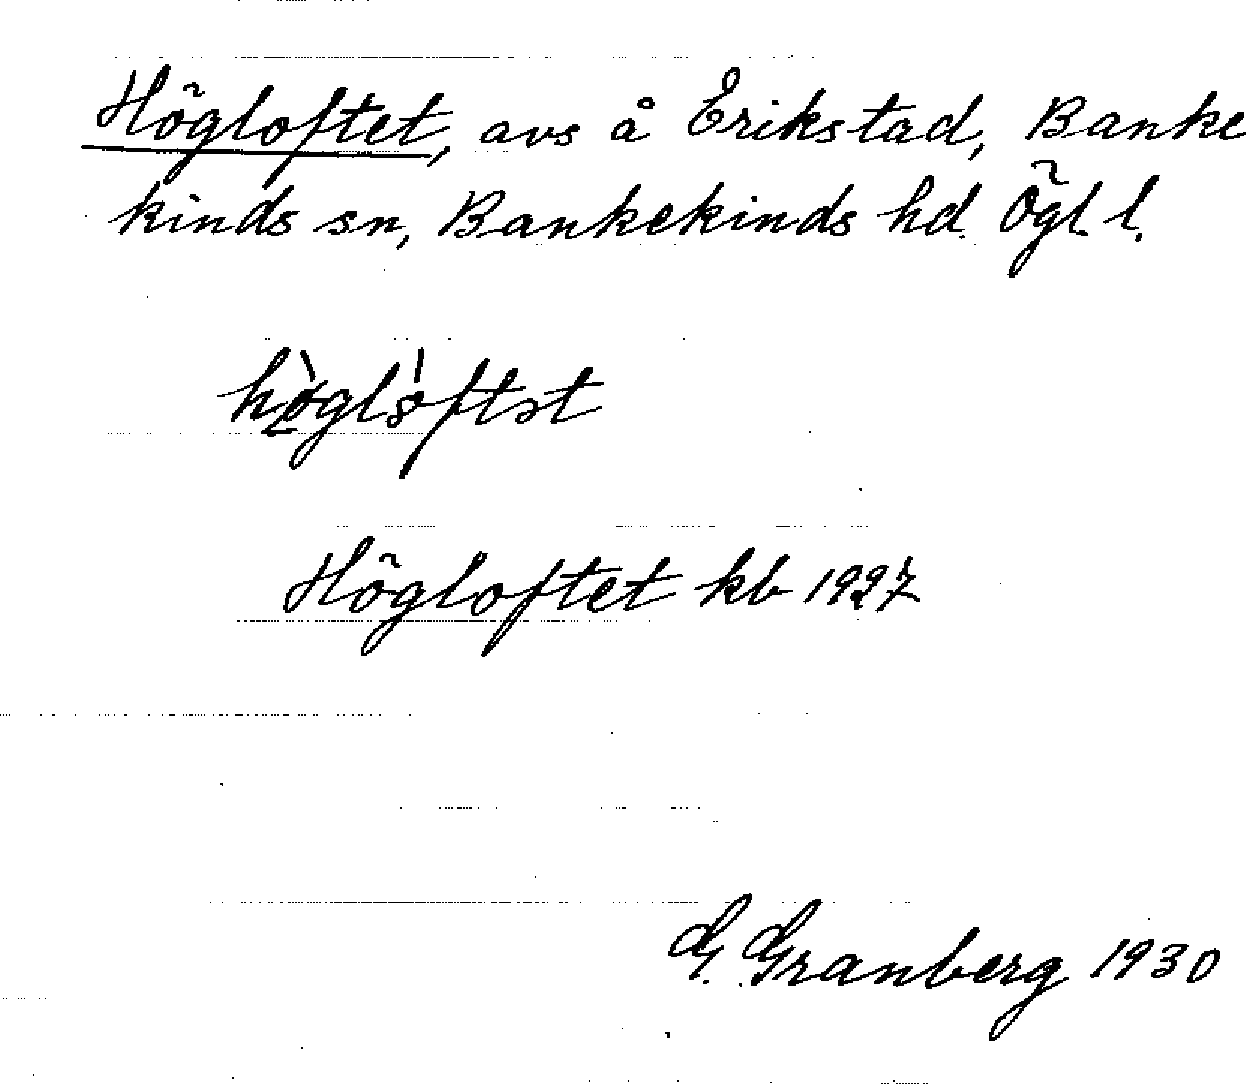 Högloftet, avs å Erikstad, Banke
kinds sn, Bankekinds hd. Ögl. l.
hø̀glóftət
Högloftet kb 1927
G. Granberg 1930